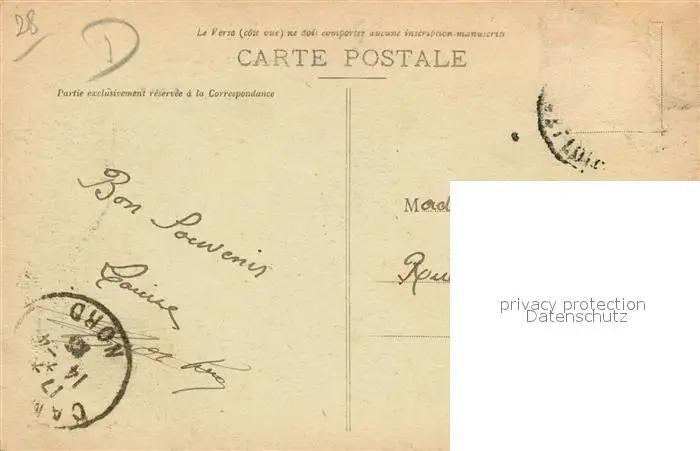 28
D
Le Verso (côté vue) ne doit comporter aucune inscription manuscrite
CARTE POSTALE
Partie exclusivement réservée à la Correspondance
Bon Souvenir
Louise
Mad
Rue
NORD
17
14
CA
privacy protection
Datenschutz